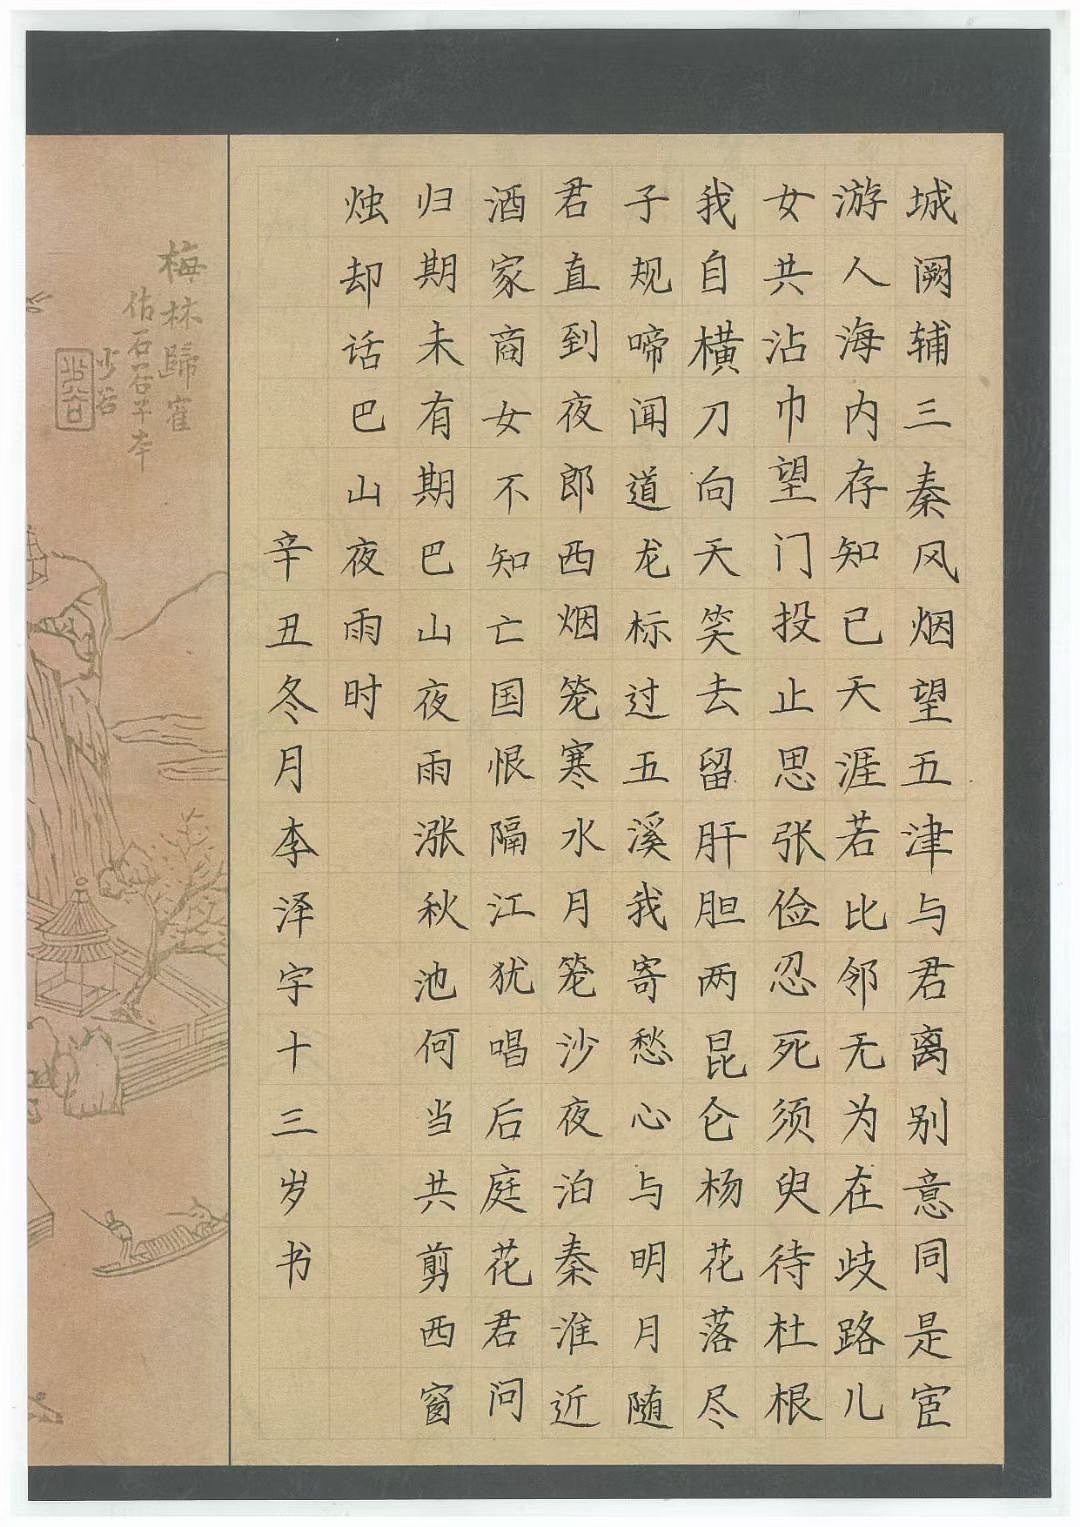 城阙辅三秦风烟望五津与君离别意同是宦
游人海内存知己天涯若比邻无为在歧路儿
女共沾巾望门投止思张俭忍死须臾待杜根
我自横刀向天笑去留肝胆两昆仑杨花落尽
子规啼闻道龙标过五溪我寄愁心与明月随
君直到夜郎西烟笼寒水月笼沙夜泊秦淮近
酒家商女不知亡国恨隔江犹唱后庭花君问
归期未有期巴山夜雨涨秋池何当共剪西窗
烛却话巴山夜雨时
辛丑冬月李泽宇十三岁书
梅林歸寉
少谷